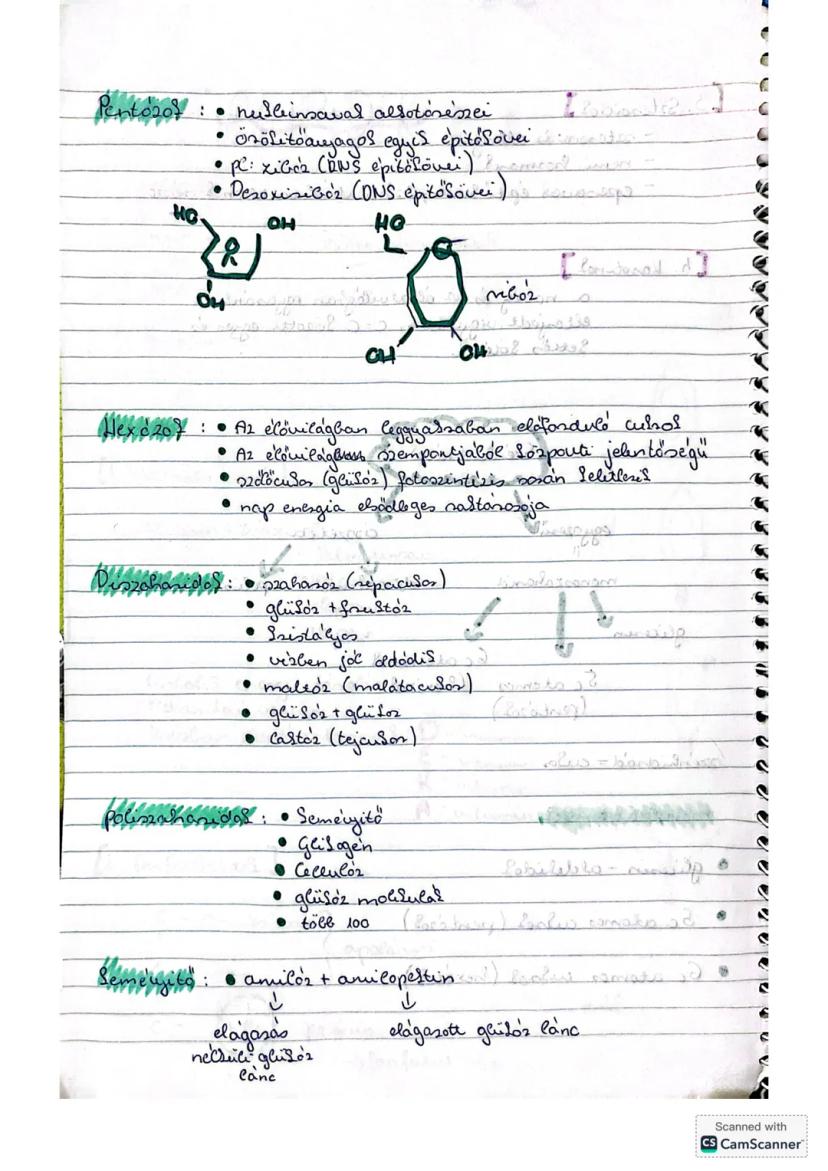 Pentózok : • nukleinsavak alkotórészei
• örökítőanyagok egyik építőkövei
• pl: ribóz (RNS építőkövei)
• Dezoxiribóz (DNS építőkövei)
HO OH
R
OH
HO
O
ribóz
OH OH
Hexózok : • Az élővilágban leggyakrabban előforduló cukrok
• Az élővilág szempontjából központi jelentőségű
• szőlőcukor (glükóz) fotoszintézis során keletkezik
• nap energia elsődleges raktározója
Diszaharidok : • szaharóz (répacukor)
• glükóz + fruktóz
• kristályos
• vízben jól oldódik
• maltóz (malátacukor)
• glükóz + glükoz
• laktóz (tejcukor)
Poliszaharidok : • Keményítő
• Glikogén
• Cellulóz
• glükóz molekulák
• több 100
Keményítő : • amilóz + amilopektin
↓ ↓
elágazás elágazott glükóz lánc
nélküli glükóz
lánc
Scanned with
CS CamScanner